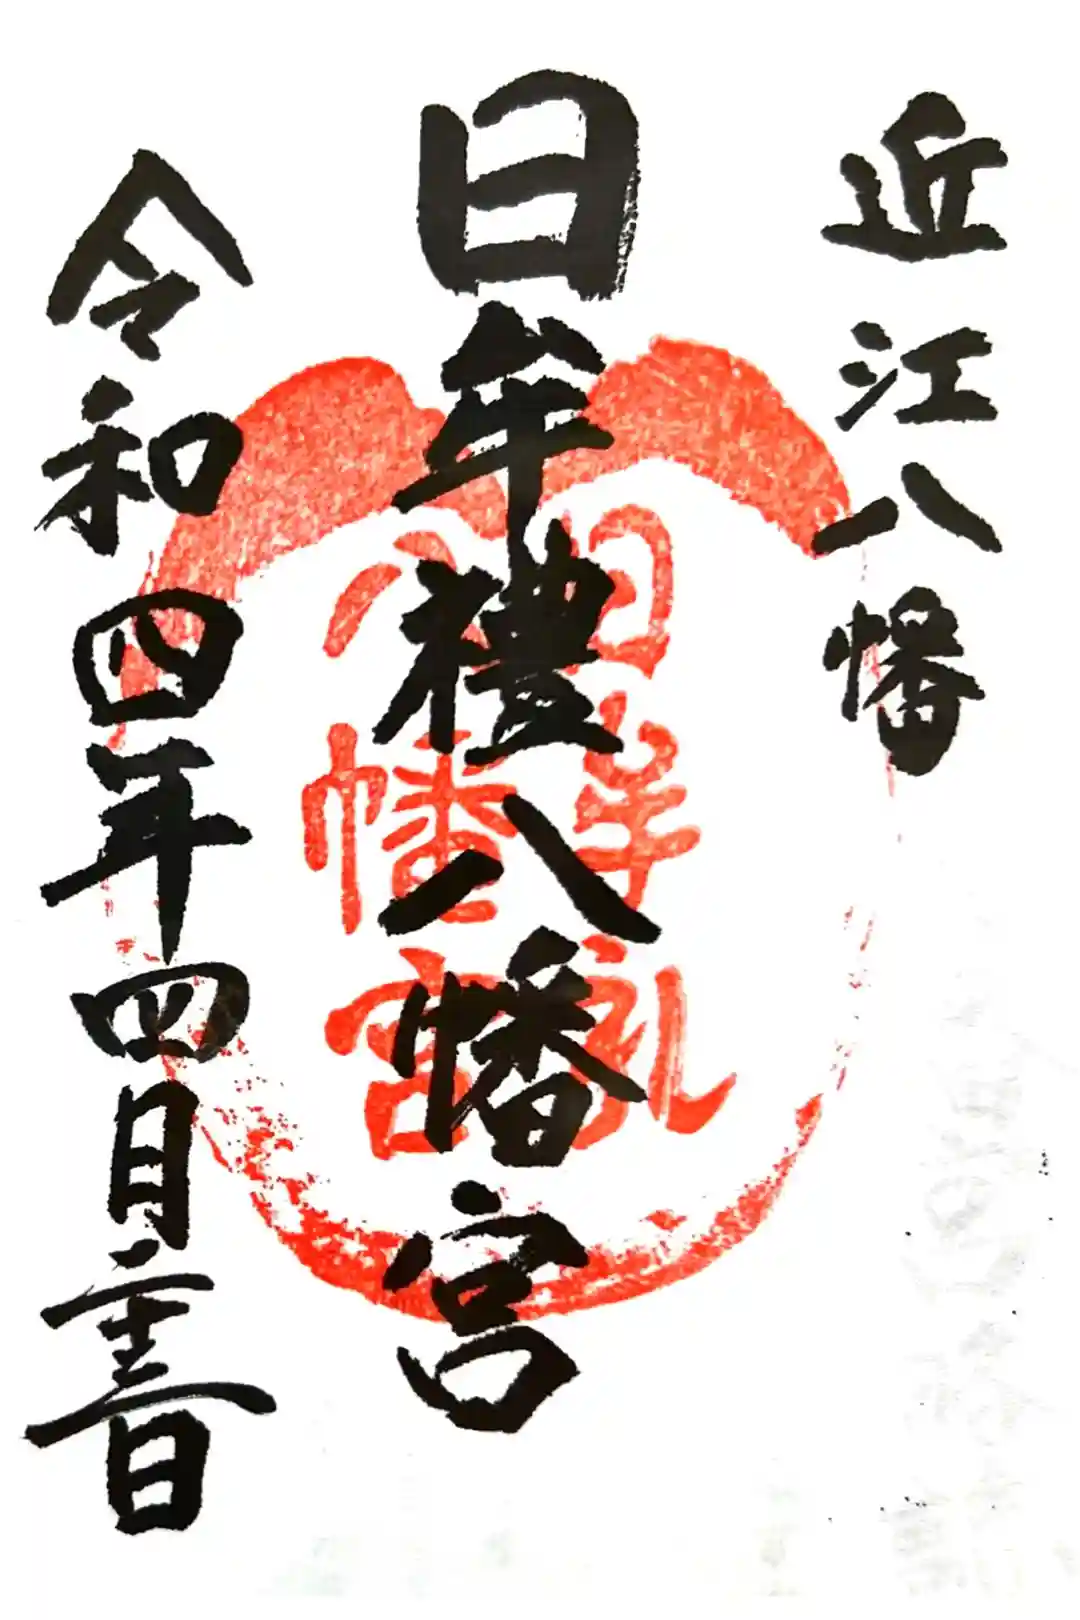 近江八幡
日牟禮八幡宮
令和四年四月 日
日牟礼
八幡宮